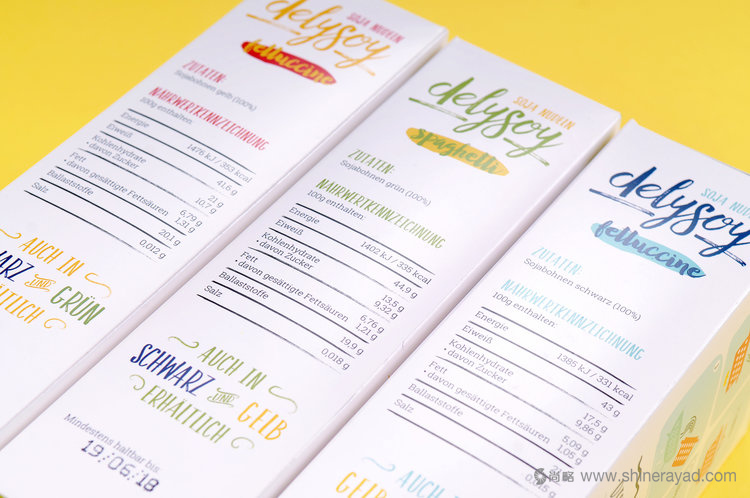 SOJA NUDELN
delysoy
fettuccine
ZUTATEN:
Sojabohnen gelb (100%)
NÄHRWERTKENNZEICHNUNG
100g enthalten:
Energie 1476 kJ / 353 kcal
Eiweiß 41,6 g
Kohlenhydrate 21 g
• davon Zucker 10,7 g
Fett 6,79 g
• davon gesättigte Fettsäuren 1,31 g
Ballaststoffe 20,1 g
Salz 0,012 g
AUCH IN
SCHWARZ UND GRÜN
ERHÄLTLICH
SOJA NUDELN
delysoy
spaghetti
ZUTATEN:
Sojabohnen grün (100%)
NÄHRWERTKENNZEICHNUNG
100g enthalten:
Energie 1402 kJ / 335 kcal
Eiweiß 44,9 g
Kohlenhydrate 13,5 g
• davon Zucker 9,32 g
Fett 6,76 g
• davon gesättigte Fettsäuren 1,21 g
Ballaststoffe 19,9 g
Salz 0,018 g
AUCH IN
SCHWARZ UND GELB
ERHÄLTLICH
Mindestens haltbar bis
19/06/18
SOJA NUD
delysoy
fettuccine
ZUTATEN:
Sojabohnen schwarz (100%)
NÄHRWERTKENNZEICHNUNG
100g enthalten:
Energie 1385 kJ / 331 kcal
Eiweiß 43 g
Kohlenhydrate 17,5 g
• davon Zucker 9,86 g
Fett 5,09 g
• davon gesättigte Fettsäuren 1,05 g
Ballaststoffe
Salz
AUCH IN
GELB
尚略 www.shinerayad.com